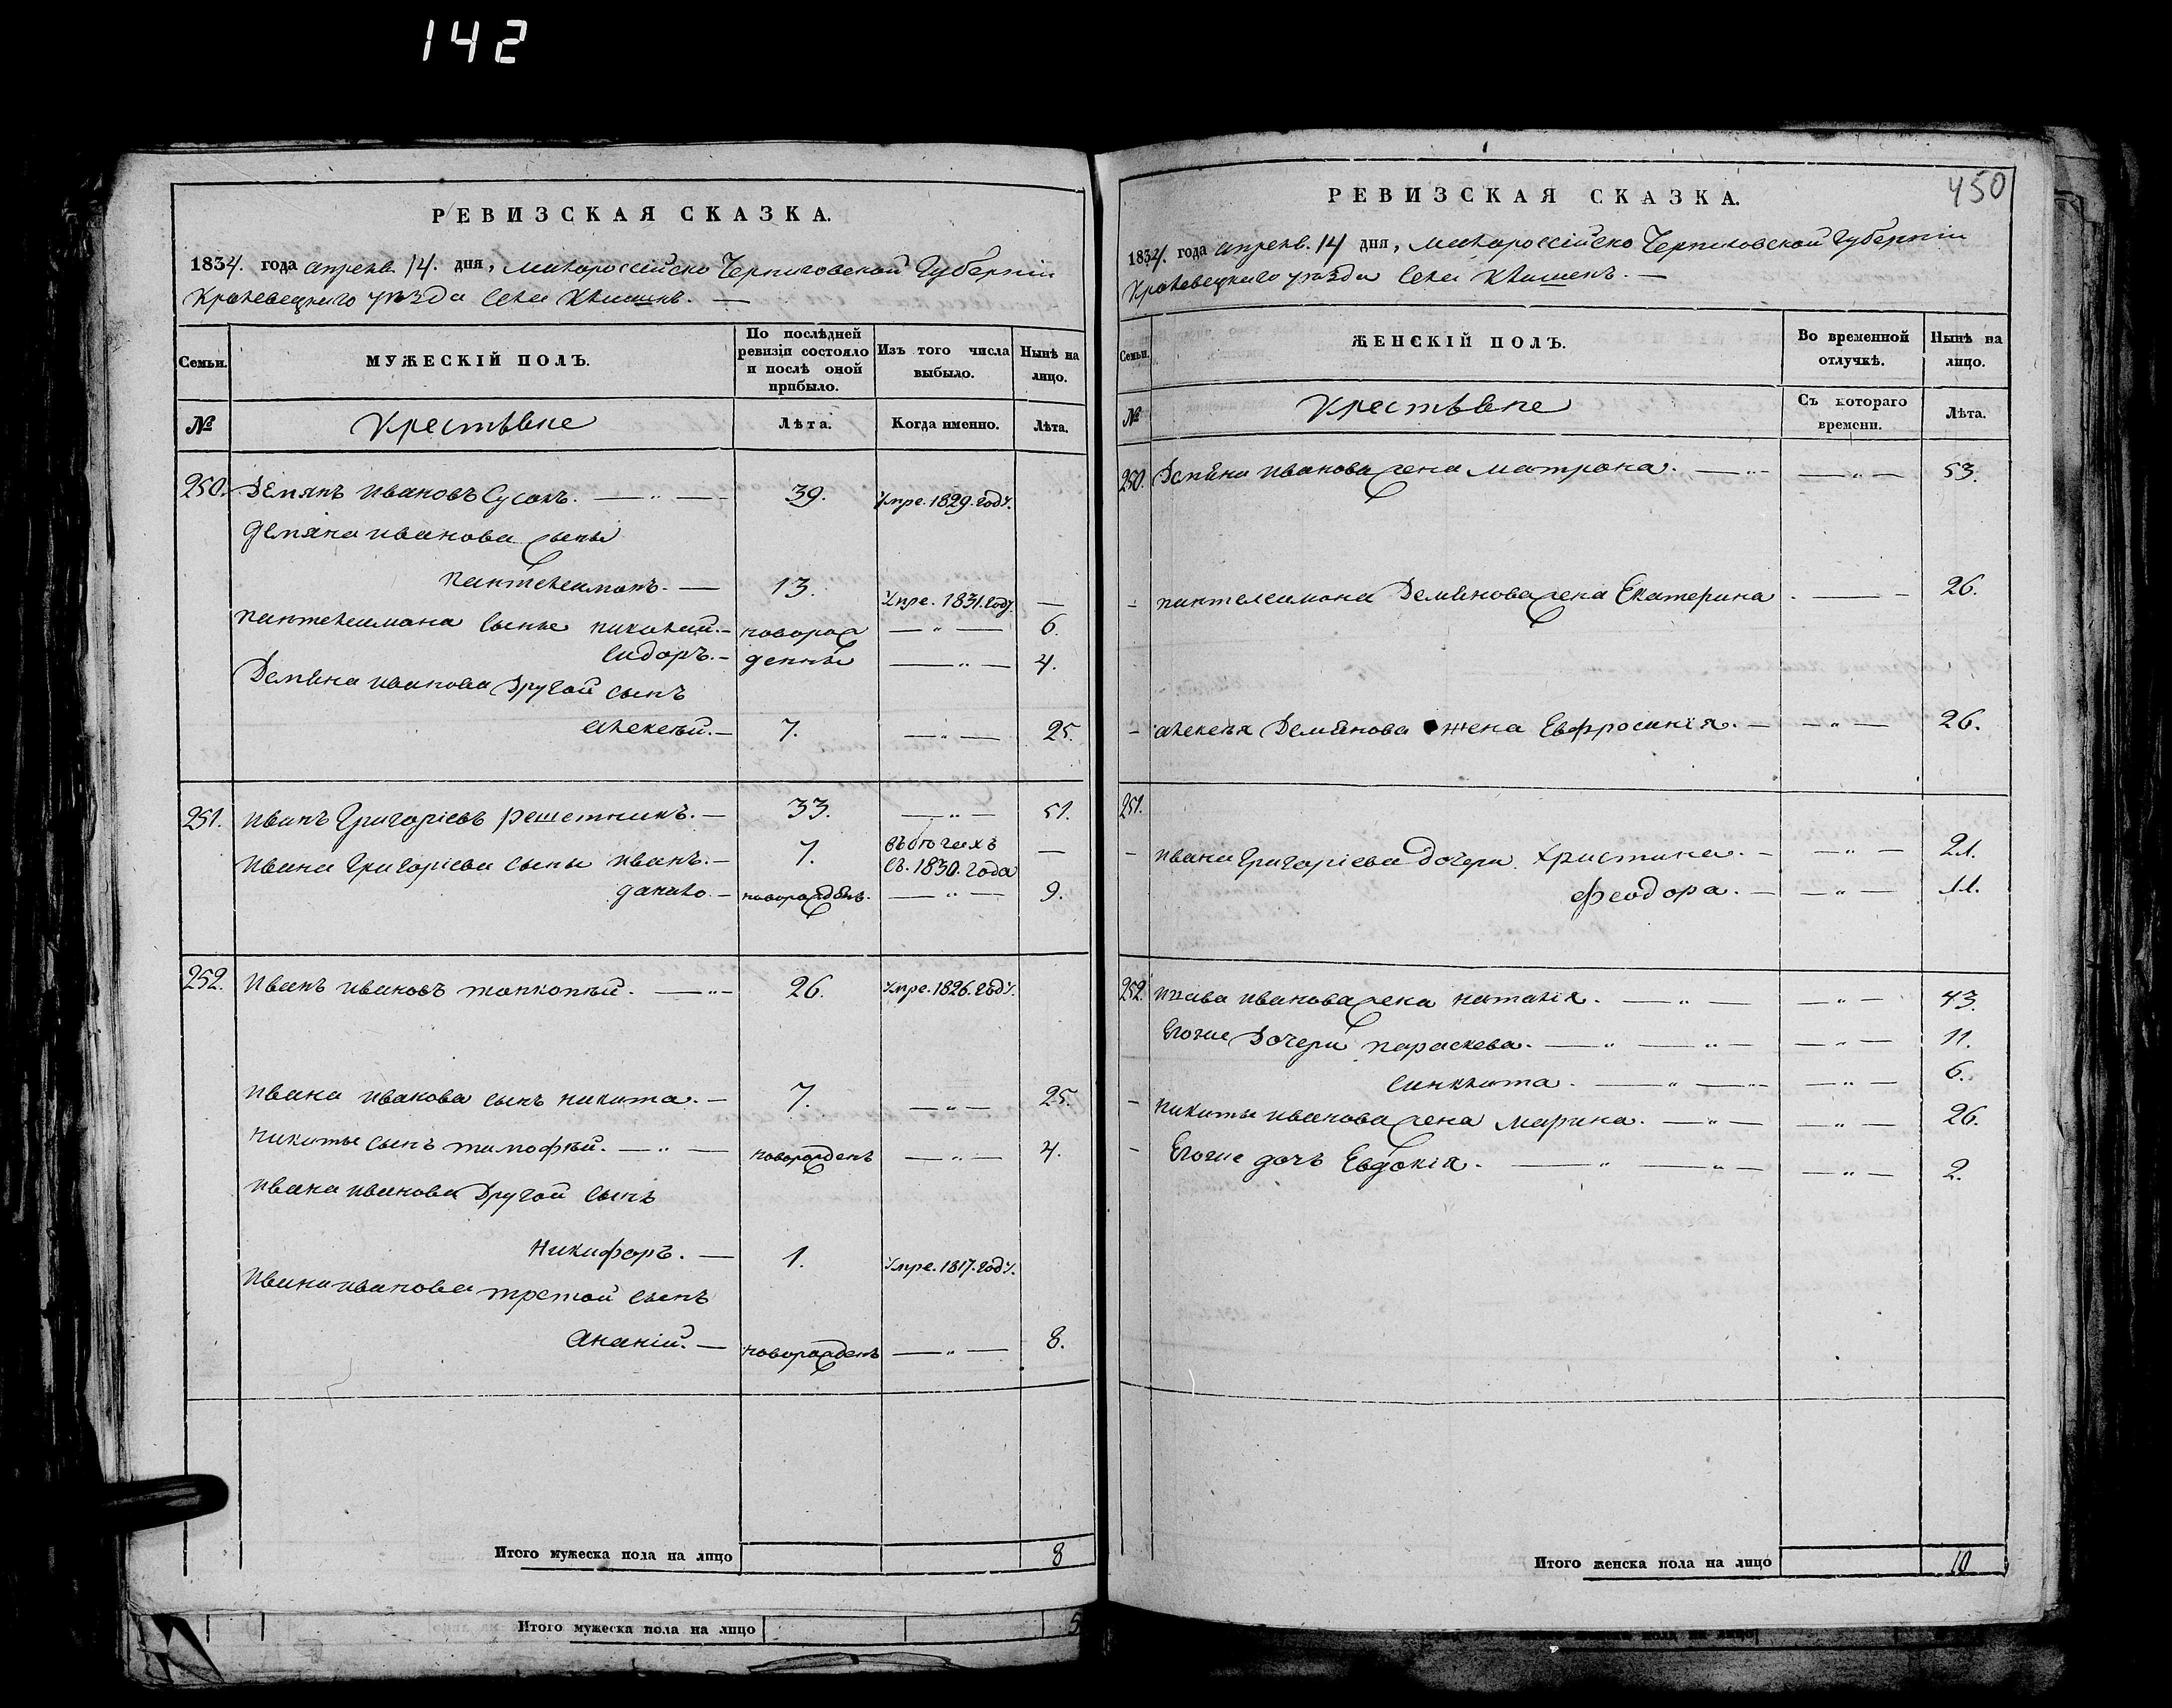 142
РЕВИЗСКАЯ СКАЗКА.
1834. года апреля. 14. дня, Малороссійско Черниговской Губерніи
Кролевецкаго уѣзда Села Клишекъ. —
Семьи.
МУЖЕСКІЙ ПОЛЪ.
По послѣдней ревизіи состояло и послѣ оной прибыло.
Изъ того числа выбыло.
Нынѣ на лицо.
№
Крестьяне
Лѣта.
Когда именно.
Лѣта.
250. Демянъ Ивановъ Сусакъ. — 39. умре. 1829. году.
Демяна Иванова сыны
Пантелеимонъ. — 13. умре. 1831. году. —
Пантелеимона сынъе Николай. — новорож — " — 6.
Сидоръ. — денны — " — 4.
Демяна Иванова другой сынъ
Алексѣй. — 7. — " — 25.
251. Иванъ Григоріевъ Решетникъ. — 33. — " — 51.
Ивана Григоріева сыны Иванъ. — 7. въ бѣгахъ съ. 1830. года —
Данило. — новорожденъ. — " — 9.
252. Иванъ Ивановъ — " — 26. умре. 1826. году.
Ивана Иванова сынъ Никита. — 7. — " — 25.
Никиты сынъ Тимофѣй. — " — новорожденъ — " — 4.
Ивана Иванова другой сынъ
Никифоръ. — 1. умре. 1817. году.
Ивана Иванова третой сынъ
Ананій. — новорожденъ — " — 8.
Итого мужеска пола на лицо 8
Итого мужеска пола на лицо 5
450
РЕВИЗСКАЯ СКАЗКА.
1834. года апреля. 14 дня, Малороссійско Черниговской Губерніи
Кролевецкаго уѣзда Села Клишекъ. —
Семьи.
ЖЕНСКІЙ ПОЛЪ.
Во временной отлучкѣ.
Нынѣ на лицо.
№
Крестьяне
Съ котораго времени.
Лѣта.
250. Демяна Иванова жена Матрона. — " — — " — 53.
— Пантелеимона Демянова жена Екатерина. — — 26.
— Алексѣя Демянова жена Евфросинія. — — " — 26.
251.
— Ивана Григоріева дочери Христина. — — " — 21.
Феодора. — — " — 11.
252. Ивана Иванова жена Наталія. — " — — " — 43.
Егоже дочери Параскева. — " — " — — " — 11.
Синклита. — " — " — — " — 6.
— Никиты Иванова жена Марина. — " — — " — 26.
— Егоже дочь Евдокія. — " — " — — " — 2.
Итого женска пола на лицо 10